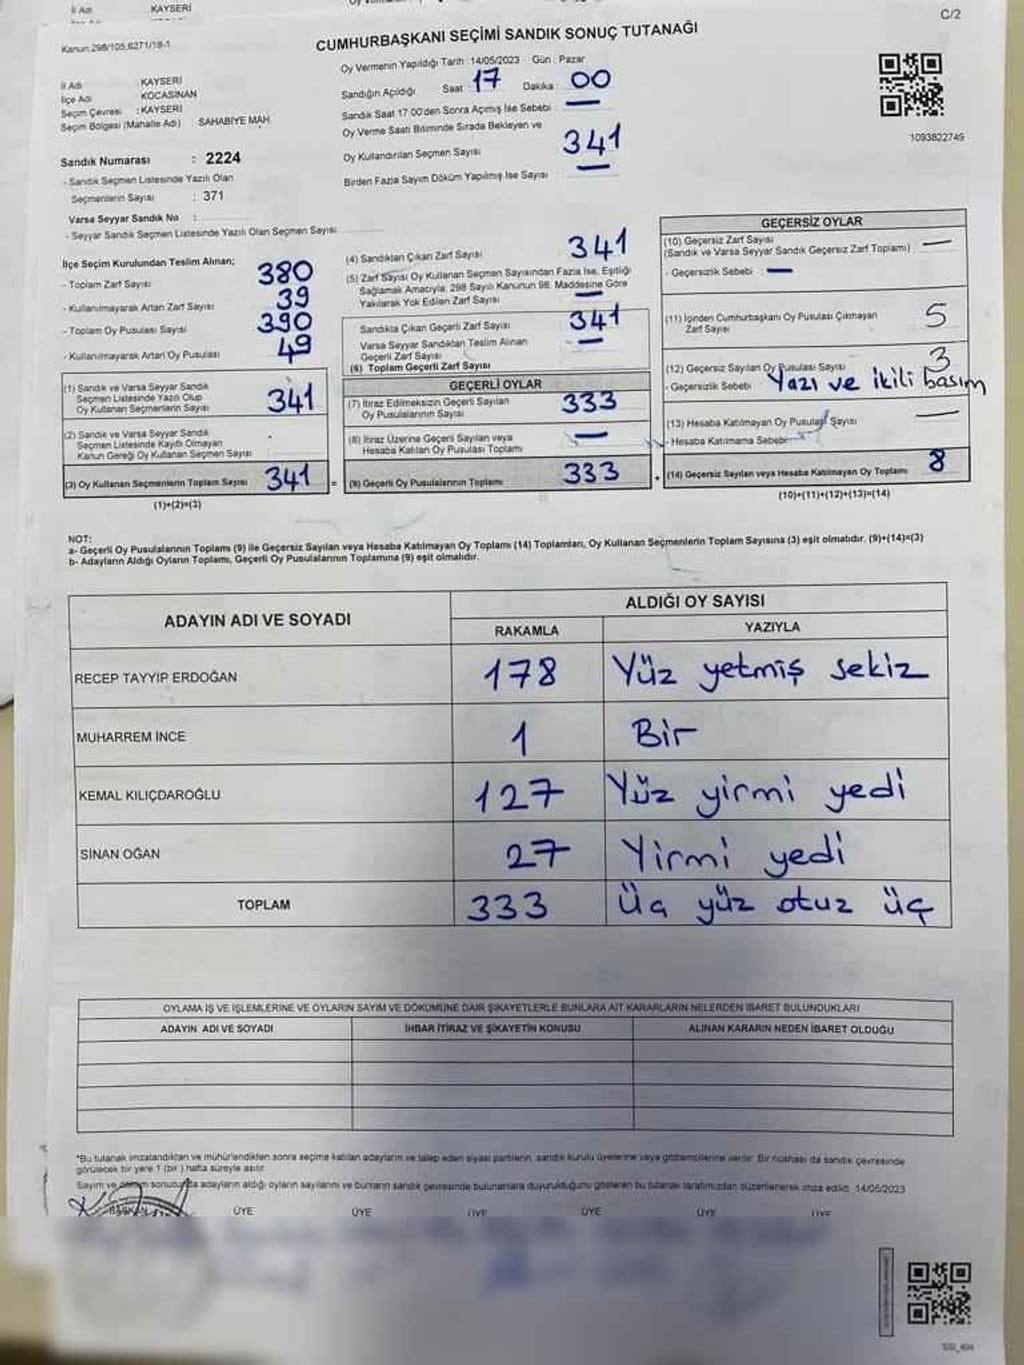 İl Adı KAYSERİ
C/2
Kanun: 298/105,6271/18-1
CUMHURBAŞKANI SEÇİMİ SANDIK SONUÇ TUTANAĞI
Oy Vermenin Yapıldığı Tarih : 14/05/2023 Gün : Pazar
İl Adı KAYSERİ
İlçe Adı KOCASİNAN
Seçim Çevresi : KAYSERİ
Seçim Bölgesi (Mahalle Adı) SAHABİYE MAH.
Sandığın Açıldığı Saat : 17 Dakika 00
Sandık Saat 17.00'den Sonra Açımış İse Sebebi —
Oy Verme Saati Bitiminde Sırada Bekleyen ve
Oy Kullandırılan Seçmen Sayısı 341
Birden Fazla Sayım Döküm Yapılmış İse Sayısı : —
1093822749
Sandık Numarası : 2224
- Sandık Seçmen Listesinde Yazılı Olan
Seçmenlerin Sayısı : 371
Varsa Seyyar Sandık No :
- Seyyar Sandık Seçmen Listesinde Yazılı Olan Seçmen Sayısı
İlçe Seçim Kurulundan Teslim Alınan;
- Toplam Zarf Sayısı 380
- Kullanılmayarak Artan Zarf Sayısı 39
- Toplam Oy Pusulası Sayısı 390
- Kullanılmayarak Artan Oy Pusulası 49
(1) Sandık ve Varsa Seyyar Sandık
Seçmen Listesinde Yazılı Olup
Oy Kullanan Seçmenlerin Sayısı 341
(2) Sandık ve Varsa Seyyar Sandık
Seçmen Listesinde Kayıtlı Olmayan
Kanun Gereği Oy Kullanan Seçmen Sayısı
(3) Oy Kullanan Seçmenlerin Toplam Sayısı 341 =
(1)+(2)=(3)
(4) Sandıktan Çıkan Zarf Sayısı 341
(5) Zarf Sayısı Oy Kullanan Seçmen Sayısından Fazla İse, Eşitliği
Sağlamak Amacıyla, 298 Sayılı Kanunun 98. Maddesine Göre
Yakılarak Yok Edilen Zarf Sayısı —
Sandıkta Çıkan Geçerli Zarf Sayısı 341
Varsa Seyyar Sandıktan Teslim Alınan
Geçerli Zarf Sayısı —
(6) Toplam Geçerli Zarf Sayısı
GEÇERLİ OYLAR
(7) İtiraz Edilmeksizin Geçerli Sayılan
Oy Pusulalarının Sayısı 333
(8) İtiraz Üzerine Geçerli Sayılan veya
Hesaba Katılan Oy Pusulası Toplamı —
(9) Geçerli Oy Pusulalarının Toplamı 333 +
GEÇERSİZ OYLAR
(10) Geçersiz Zarf Sayısı
(Sandık ve Varsa Seyyar Sandık Geçersiz Zarf Toplamı) : —
- Geçersizlik Sebebi : —
(11) İçinden Cumhurbaşkanı Oy Pusulası Çıkmayan
Zarf Sayısı 5
(12) Geçersiz Sayılan Oy Pusulası Sayısı 3
- Geçersizlik Sebebi Yazı ve ikili basım
(13) Hesaba Katılmayan Oy Pusulası Sayısı —
- Hesaba Katılmama Sebebi
(14) Geçersiz Sayılan veya Hesaba Katılmayan Oy Toplamı 8
(10)+(11)+(12)+(13)=(14)
NOT:
a- Geçerli Oy Pusulalarının Toplamı (9) ile Geçersiz Sayılan veya Hesaba Katılmayan Oy Toplamı (14) Toplamları, Oy Kullanan Seçmenlerin Toplam Sayısına (3) eşit olmalıdır. (9)+(14)=(3)
b- Adayların Aldığı Oyların Toplamı, Geçerli Oy Pusulalarının Toplamına (9) eşit olmalıdır.
ADAYIN ADI VE SOYADI ALDIĞI OY SAYISI
RAKAMLA YAZIYLA
RECEP TAYYİP ERDOĞAN 178 Yüz yetmiş sekiz
MUHARREM İNCE 1 Bir
KEMAL KILIÇDAROĞLU 127 Yüz yirmi yedi
SİNAN OĞAN 27 Yirmi yedi
TOPLAM 333 Üç yüz otuz üç
OYLAMA İŞ VE İŞLEMLERİNE VE OYLARIN SAYIM VE DÖKÜMÜNE DAİR ŞİKAYETLERLE BUNLARA AİT KARARLARIN NELERDEN İBARET BULUNDUKLARI
ADAYIN ADI VE SOYADI İHBAR İTİRAZ VE ŞİKAYETİN KONUSU ALINAN KARARIN NEDEN İBARET OLDUĞU
*Bu tutanak imzalandıktan ve mühürlendikten sonra seçime katılan adayların ve talep eden siyasi partilerin, sandık kurulu üyelerine veya gözlemcilerine verilir. Bir nüshası da sandık çevresinde
görülecek bir yere 1 (bir) hafta süreyle asılır.
Sayım ve döküm sonucunda adayların aldığı oyların sayılarını ve bunların sandık çevresinde bulunanlara duyurulduğunu gösteren bu tutanak tarafımızdan düzenlenerek imza edildi. 14/05/2023
BAŞKAN ÜYE ÜYE ÜYE ÜYE ÜYE ÜYE